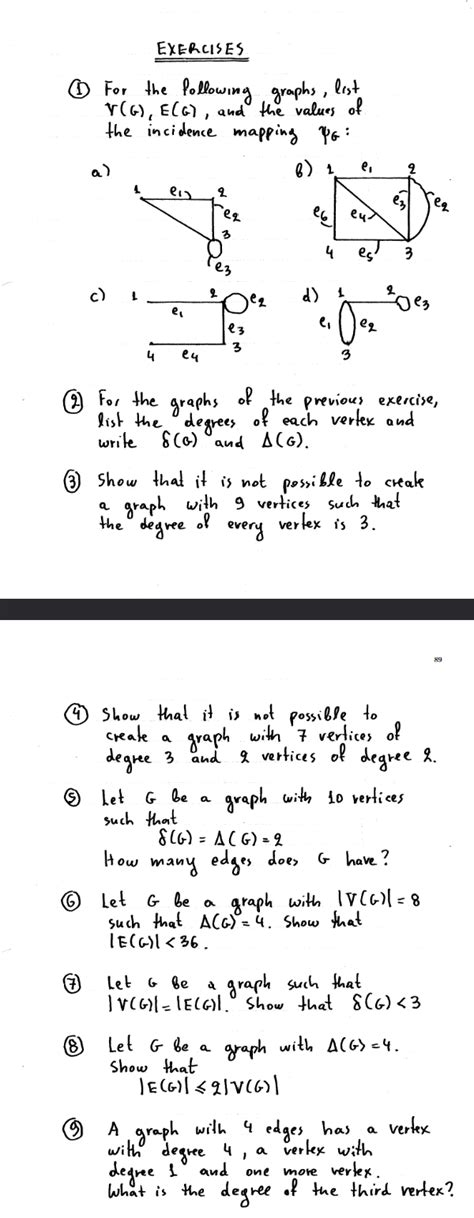 EXERCISES
① For the following graphs, list
V(G), E(G), and the values of
the incidence mapping ψG:
a)
1 e1 2
e2
3
e3
b)
1 e1 2
e6 e4 e3 e2
4 e5 3
c)
1 2 e2
e1
e3
4 e4 3
d)
1 2 e3
e1 e2
3
② For the graphs of the previous exercise,
list the degrees of each vertex and
write δ(G) and Δ(G).
③ Show that it is not possible to create
a graph with 9 vertices such that
the degree of every vertex is 3.
89
④ Show that it is not possible to
create a graph with 7 vertices of
degree 3 and 2 vertices of degree 2.
⑤ Let G be a graph with 10 vertices
such that
δ(G) = Δ(G) = 2
How many edges does G have?
⑥ Let G be a graph with |V(G)| = 8
such that Δ(G) = 4. Show that
|E(G)| < 36.
⑦ Let G be a graph such that
|V(G)| = |E(G)|. Show that δ(G) < 3
⑧ Let G be a graph with Δ(G) = 4.
Show that
|E(G)| ≤ 2|V(G)|
⑨ A graph with 4 edges has a vertex
with degree 4, a vertex with
degree 1 and one more vertex.
What is the degree of the third vertex?